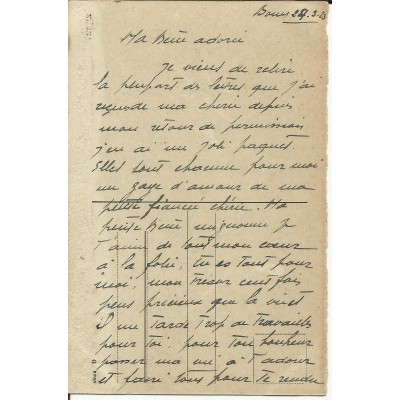 27-3-
Ma Bémé adorée
Je viens de relire
la plupart des lettres que j'ai
reçues de ma chérie depuis
mon retour de permission
j'en ai un joli paquet.
Elles sont chacune pour moi
un gage d'amour de ma
petite fiancée chérie. Ma
petite mignonne je
t'aime de tout mon coeur
à la folie, tu es tout pour
moi, mon trésor cent fois
plus précieux que la vie et
il me tarde trop de travailler
pour toi, pour ton bonheur
passer ma vie à t'adorer
et faire tous pour te rendre